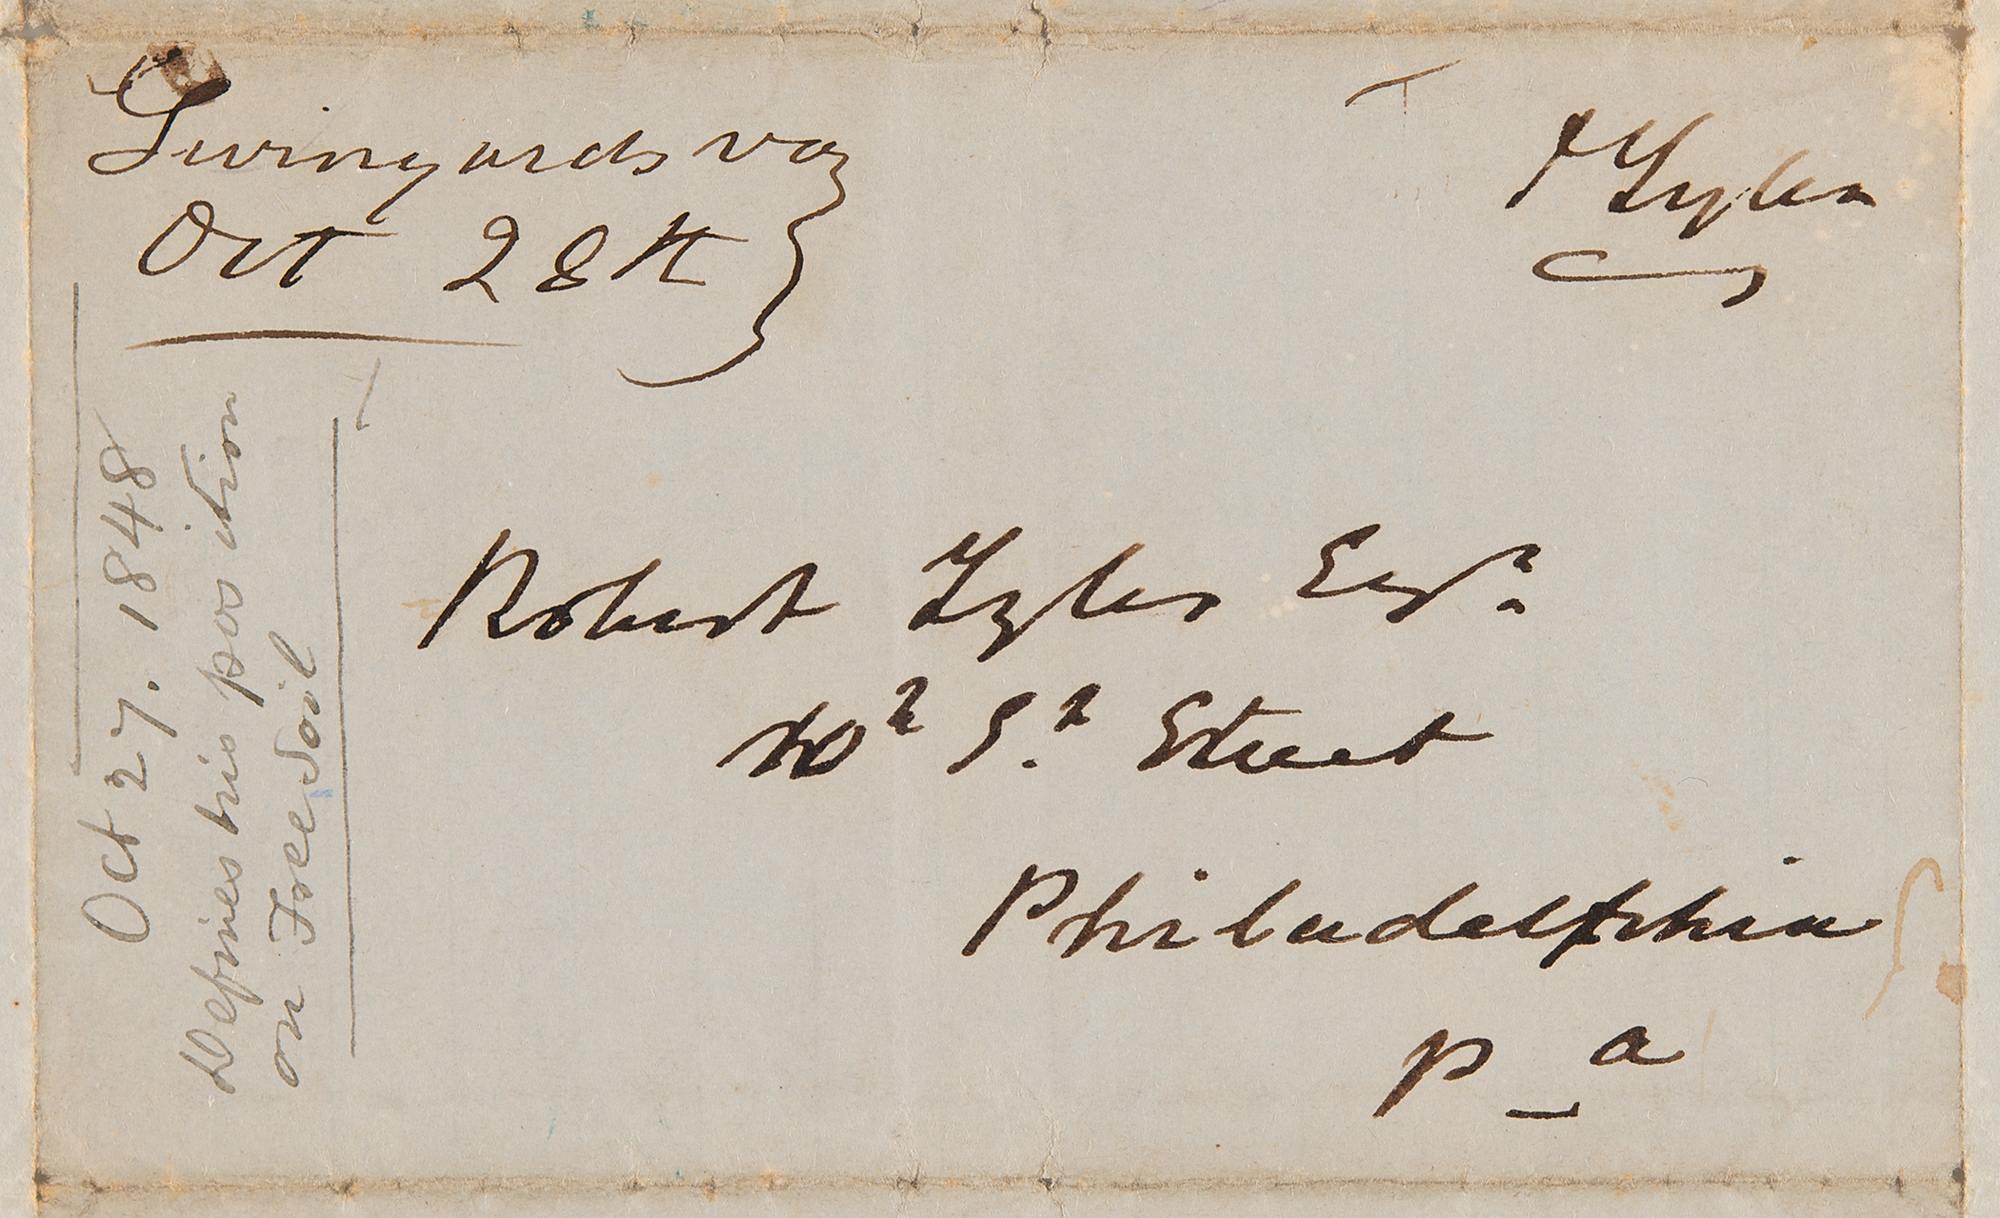 Swinyards va
Oct 28th
J Tyler
Robert Tyler Esqr.
S.2 Street
Philadelphia
Pa
Oct 27. 1848
Defines his position
on Free Soil